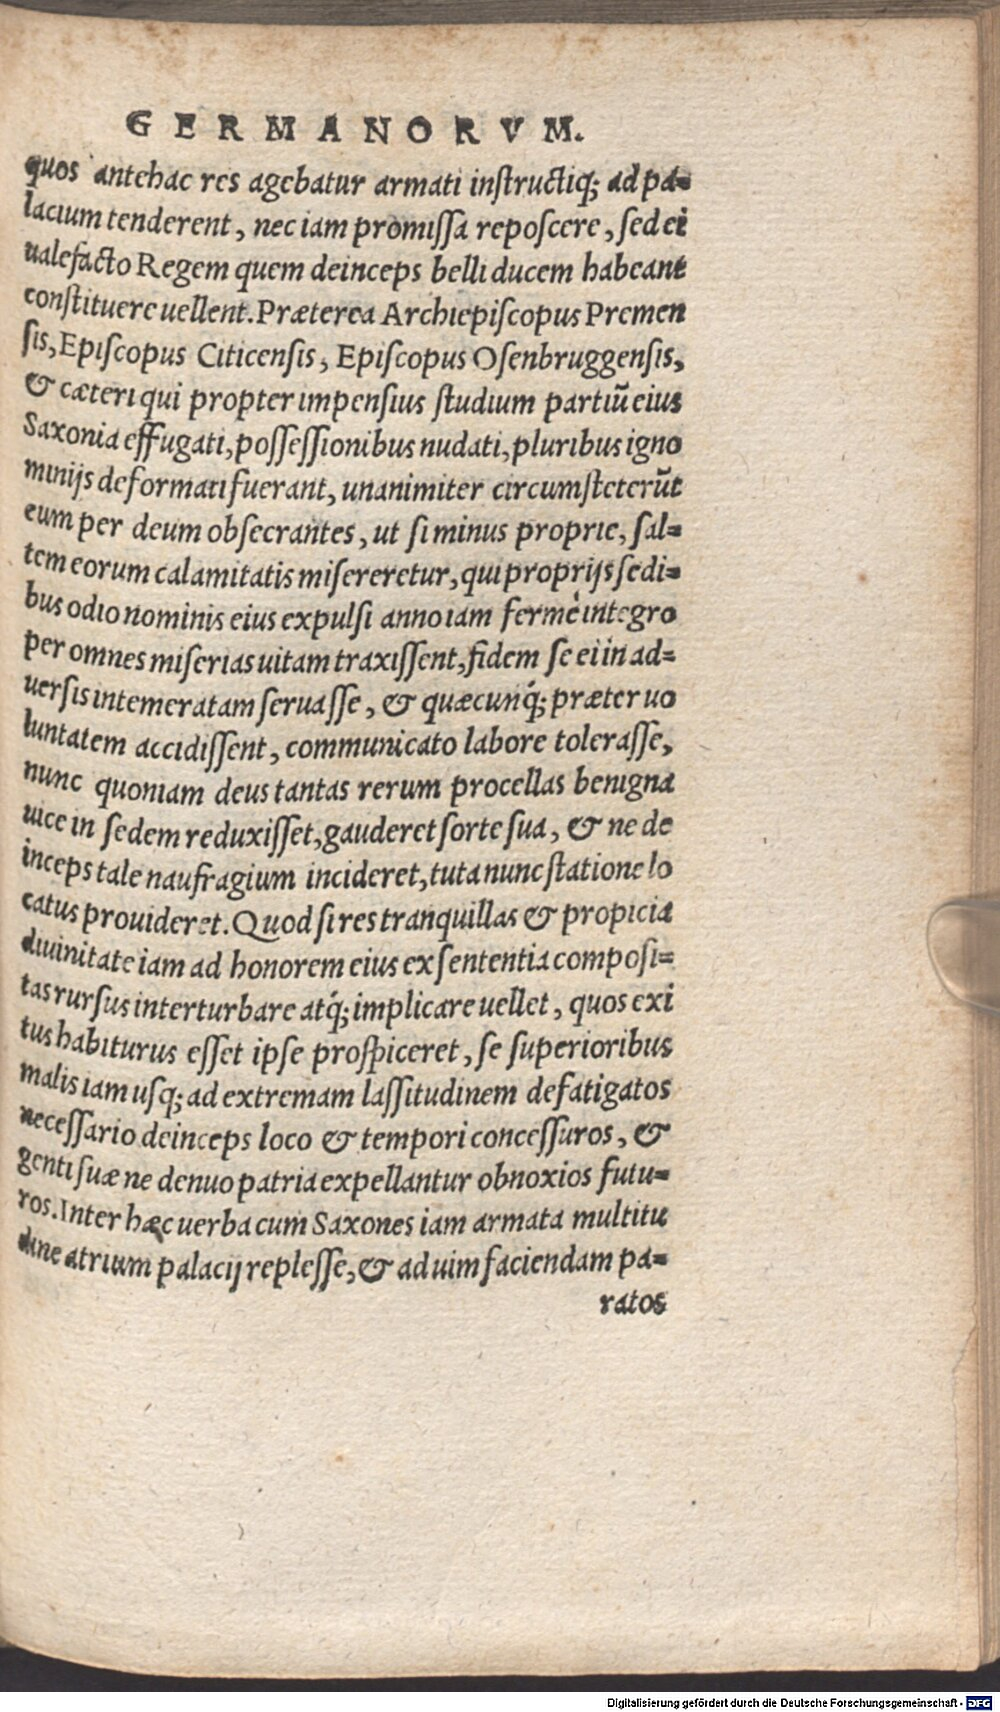 GERMANORVM.
quos antehac res agebatur armati inſtructiq́; ad pa=
lacium tenderent, nec iam promiſſa repoſcere, ſed ei
ualefacto Regem quem deinceps belli ducem habeant
conſtituere uellent. Præterea Archiepiſcopus Premen
ſis, Epiſcopus Citicenſis, Epiſcopus Oſenbruggenſis,
& cæteri qui propter impenſius ſtudium partiū eius
Saxonia effugati, poſſeſſionibus nudati, pluribus igno
minijs deformati fuerant, unanimiter circumſteterūt
eum per deum obſecrantes, ut ſi minus proprie, ſal=
tem eorum calamitatis miſereretur, qui proprijs ſedi=
bus odio nominis eius expulſi anno iam fermè integro
per omnes miſerias uitam traxiſſent, fidem ſe ei in ad=
uerſis intemeratam ſeruaſſe, & quæcunq́; præter uo
luntatem accidiſſent, communicato labore toleraſſe,
nunc quoniam deus tantas rerum procellas benigna
uice in ſedem reduxiſſet, gauderet ſorte ſua, & ne de
inceps tale naufragium incideret, tuta nunc ſtatione lo
catus prouideret. Quod ſi res tranquillas & propicia
diuinitate iam ad honorem eius ex ſententia compoſi=
tas rurſus interturbare atq́; implicare uellet, quos exi
tus habiturus eſſet ipſe proſpiceret, ſe ſuperioribus
malis iam uſq; ad extremam laſſitudinem defatigatos
neceſſario deinceps loco & tempori conceſſuros, &
genti ſuæ ne denuo patria expellantur obnoxios futu=
ros. Inter hæc uerba cum Saxones iam armata multitu
dine atrium palacij repleſſe, & ad uim faciendam pa=
ratos
Digitalisierung gefördert durch die Deutsche Forschungsgemeinschaft - DFG